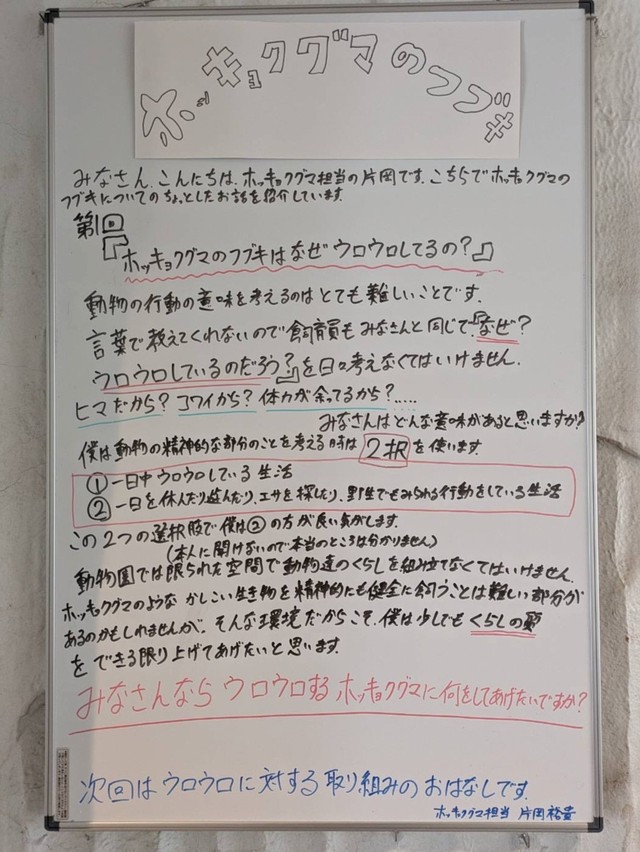 ホッキョクグマのつづき
みなさん、こんにちは、ホッキョクグマ担当の片岡です。こちらでホッキョクグマの
フブキについてのちょっとしたお話を紹介しています。
第1回
『ホッキョクグマのフブキはなぜウロウロしてるの?』
動物の行動の意味を考えるのはとても難しいことです。
言葉で教えてくれないので飼育員もみなさんと同じで『なぜ?
ウロウロしているのだろう?』を日々考えなくてはいけません。
ヒマだから?コワイから?体力が余ってるから?……
みなさんはどんな意味があると思いますか?
僕は動物の精神的な部分のことを考える時は2択を使います。
①一日中ウロウロしている生活
②一日を休んだり遊んだり、エサを探したり、野生でもみられる行動をしている生活
この2つの選択肢で僕は②の方が良い気がします。
(本人に聞けないので本当のところは分かりません)
動物園では限られた空間で動物達のくらしを組み立てなくてはいけません。
ホッキョクグマのようなかしこい生き物を精神的にも健全に飼うことは難しい部分が
あるのかもしれませんが、そんな環境だからこそ、僕は少しでもくらしの質
をできる限り上げてあげたいと思います。
みなさんならウロウロするホッキョクグマに何をしてあげたいですか?
次回はウロウロに対する取り組みのおはなしです。
ホッキョクグマ担当 片岡裕貴